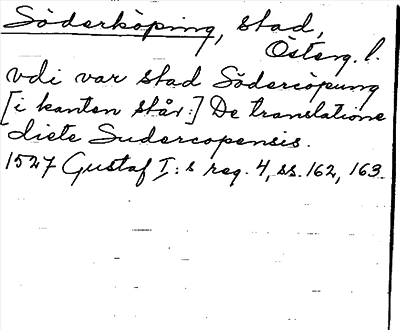 Söderköping, stad,
Österg. l.
vdi var stad Södercöpung
[i kanten står:] De translatione
diete Sudercopensis.
1527 Gustaf I:s reg. 4, ss. 162, 163.